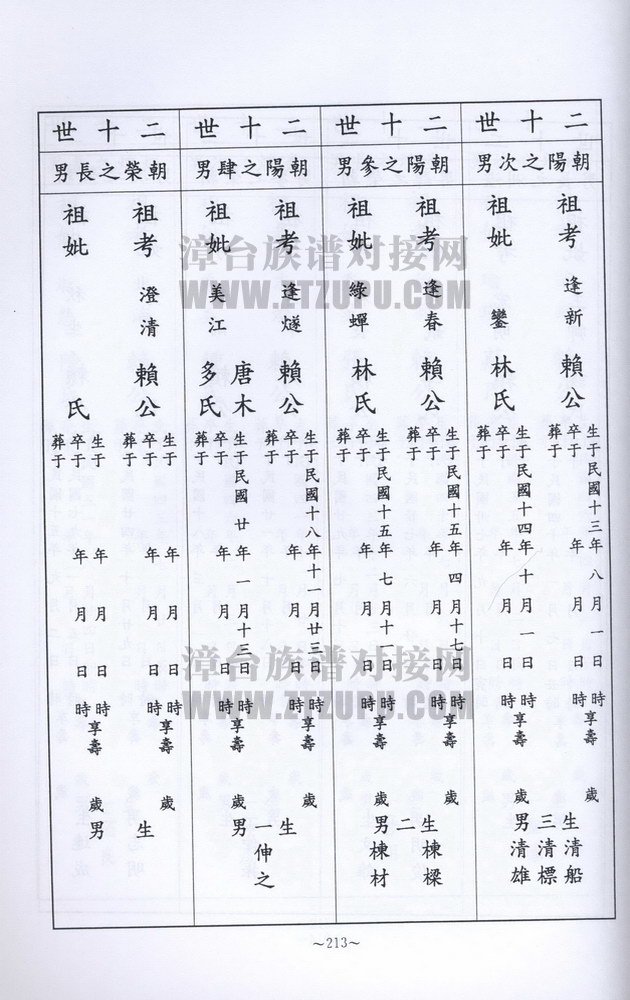 二十世
朝陽之次男
祖考 逢新 賴公
生于民國十三年八月一日 時
卒于 年 月 日 時享壽 歲
葬于
祖妣 鑾 林氏
生于民國十四年十月一日 時
卒于 年 月 日 時享壽 歲
葬于
生三男
清船
清標
清雄
二十世
朝陽之參男
祖考 逢春 賴公
生于民國十五年四月十七日 時
卒于 年 月 日 時享壽 歲
葬于
祖妣 綠蟬 林氏
生于民國十五年七月十 日 時
卒于 年 月 日 時享壽 歲
葬于
生二男
棟樑
棟材
二十世
朝陽之肆男
祖考 逢燧 賴公
生于民國十八年十一月廿三日 時
卒于 年 月 日 時享壽 歲
葬于
祖妣 美江 唐木多氏
生于民國廿年一月十三日 時
卒于 年 月 日 時享壽 歲
葬于
生一男
伸之
二十世
朝榮之長男
祖考 澄清 賴公
生于 年 月 日 時
卒于 年 月 日 時享壽 歲
葬于
祖妣 氏
生于 年 月 日 時
卒于 年 月 日 時享壽 歲
葬于
生 男
漳台族谱对接网
WWW.ZTZUPU.COM
漳台族谱对接网
WWW.ZTZUPU.COM
~213~